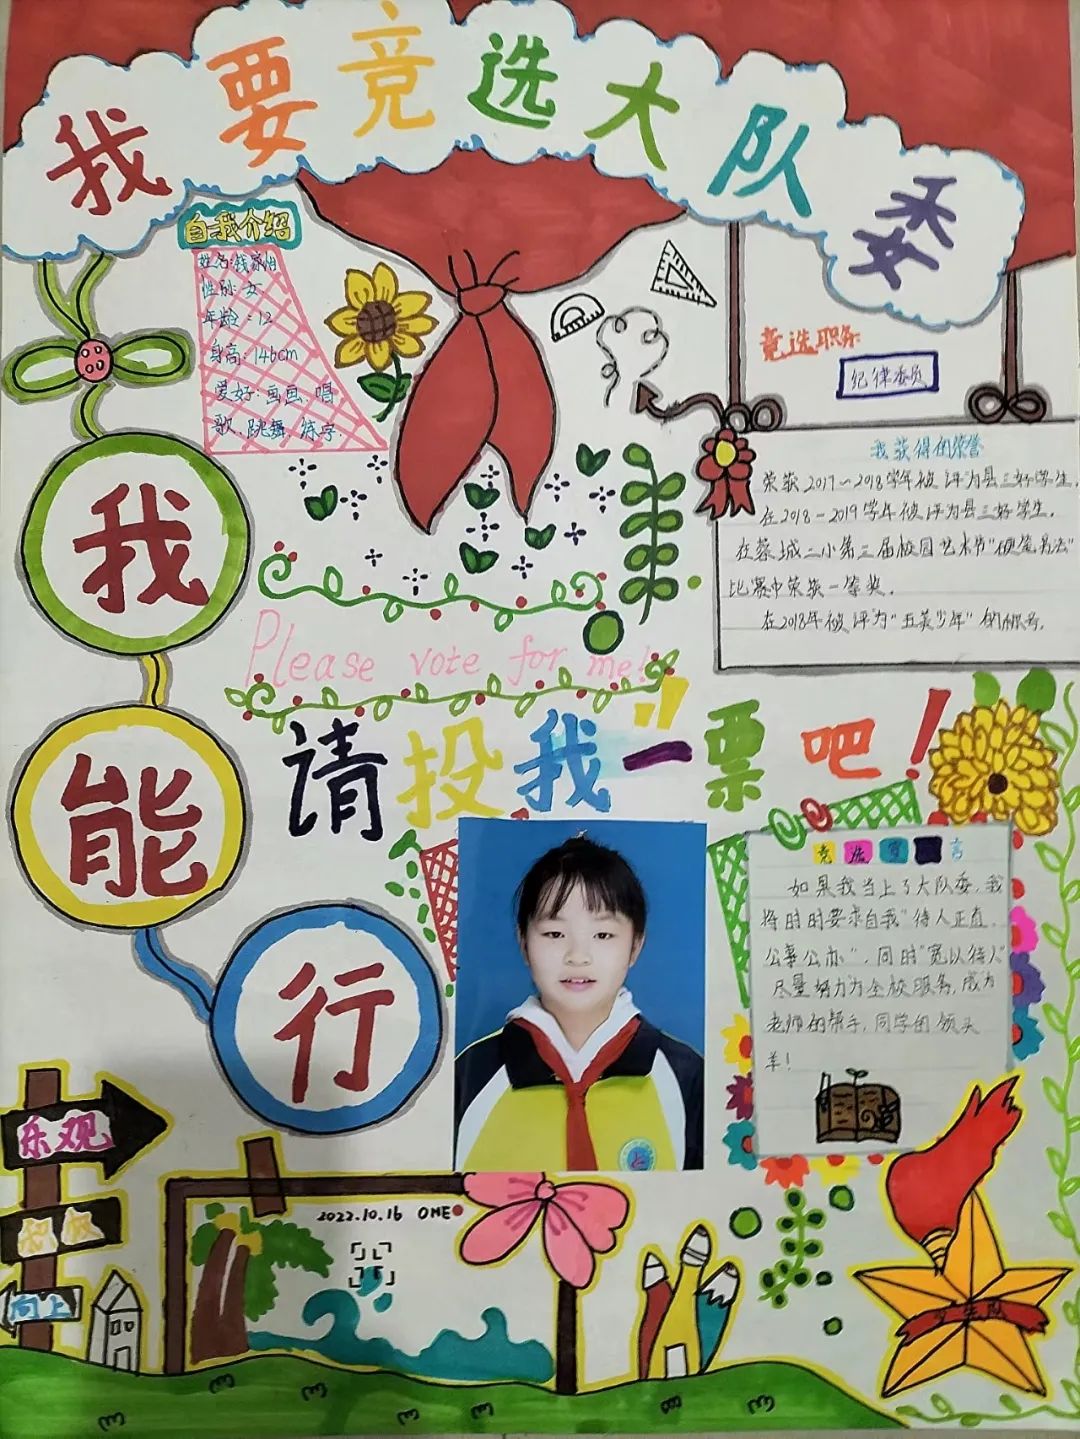 我要竞选大队委
自我介绍
姓名:钱家怡
性别:女
年龄:12
身高:146cm
爱好:画画、唱
歌、跳舞、练字.
竞选职务
纪律委员
我获得的荣誉
荣获2017～2018学年被评为县三好学生.
在2018-2019学年被评为县三好学生.
在蓉城二小第三届校园艺术节"硬笔书法"
比赛中荣获一等奖.
在2018年被评为"五美少年"的称号.
我
能
行
Please vote for me!
请投我一票吧!
竞选宣言
如果我当上了大队委,我
将时时要求自我"待人正直,
公事公办",同时"宽以待人"
尽量努力为全校服务,成为
老师的帮手,同学的领头
羊!
乐观
积极
向上
2022.10.16 ONE
少先队